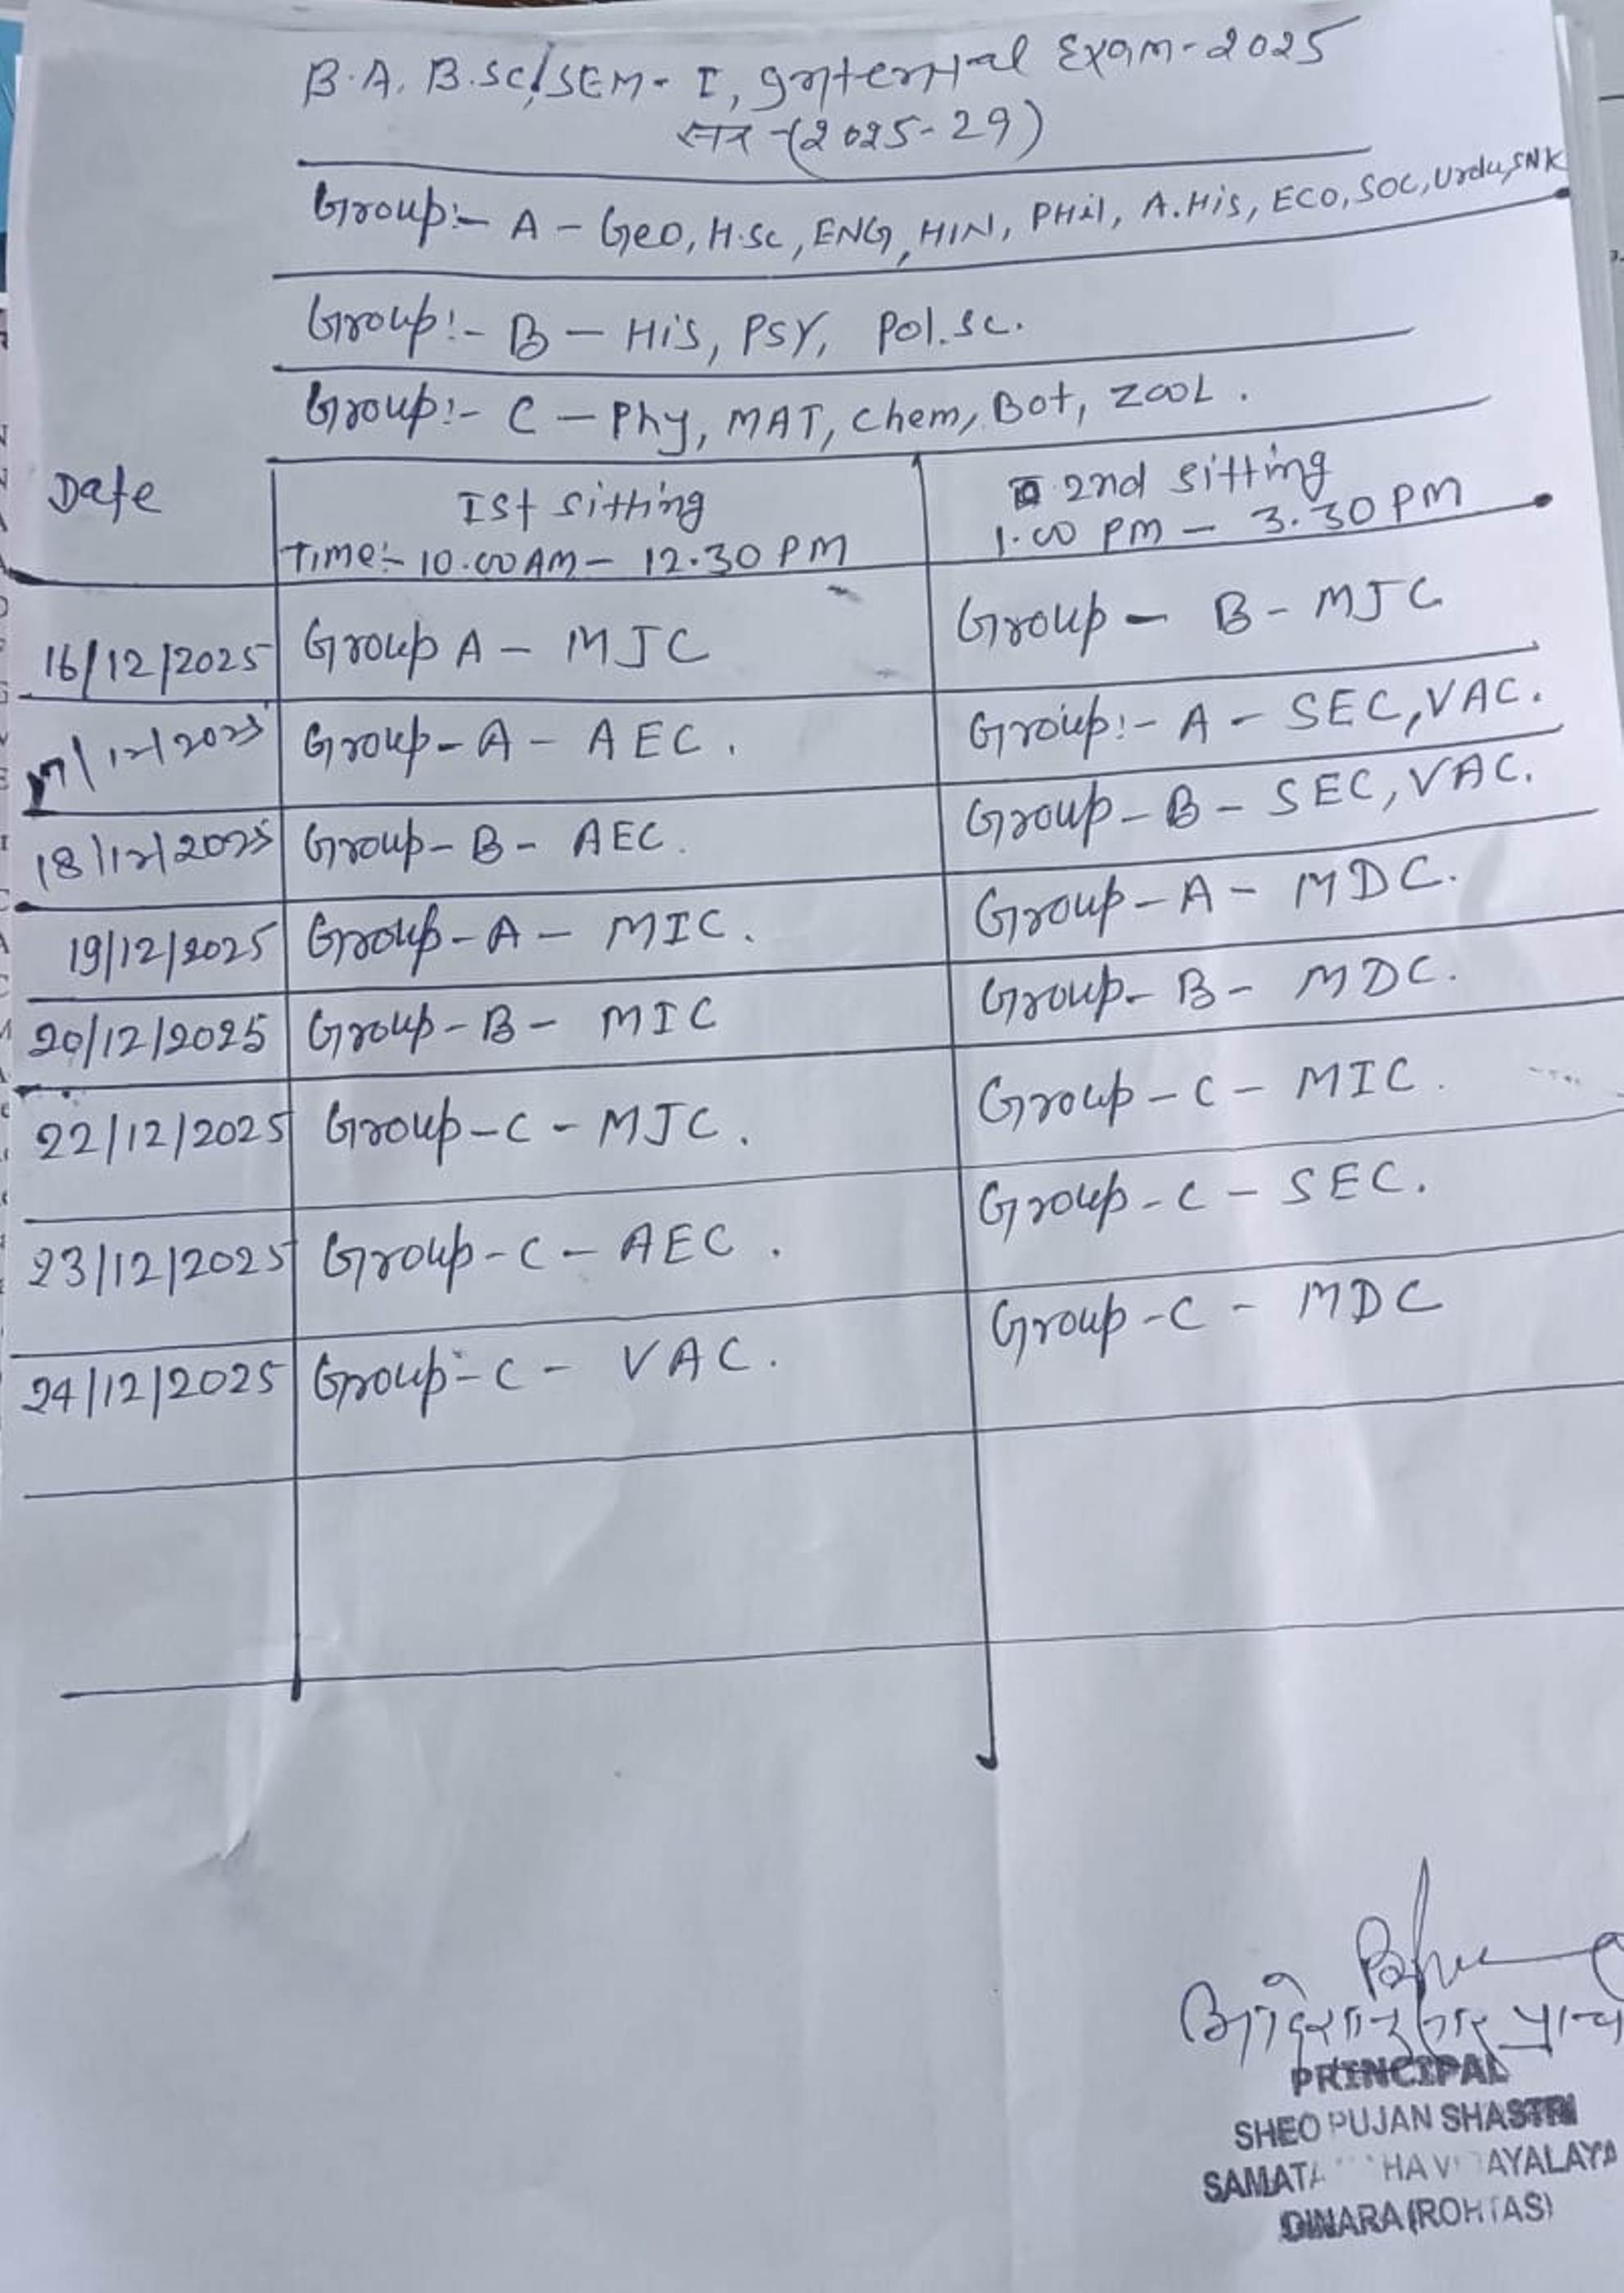 B.A. B.Sc/SEM- I, Internal Exam-2025
सत्र -(2025-29)
Group:- A - Geo, H.Sc, ENG, HIN, PHil, A.His, ECO, SOC, Urdu, SNK
Group:- B - His, PSY, Pol.sc.
Group:- C - Phy, MAT, Chem, Bot, ZOOL.
Date
Ist sitting
Time:- 10.00 AM - 12.30 PM
2nd sitting
1.00 PM - 3.30 PM
16/12/2025 Group A - MJC Group - B - MJC
17/12/2025 Group - A - AEC. Group:- A - SEC, VAC.
18/12/2025 Group - B - AEC. Group - B - SEC, VAC.
19/12/2025 Group - A - MIC. Group - A - MDC.
20/12/2025 Group - B - MIC Group - B - MDC.
22/12/2025 Group - C - MJC. Group - C - MIC.
23/12/2025 Group - C - AEC. Group - C - SEC.
24/12/2025 Group - C - VAC. Group - C - MDC
PRINCIPAL
SHEO PUJAN SHASTRI
DINARA (ROHTAS)